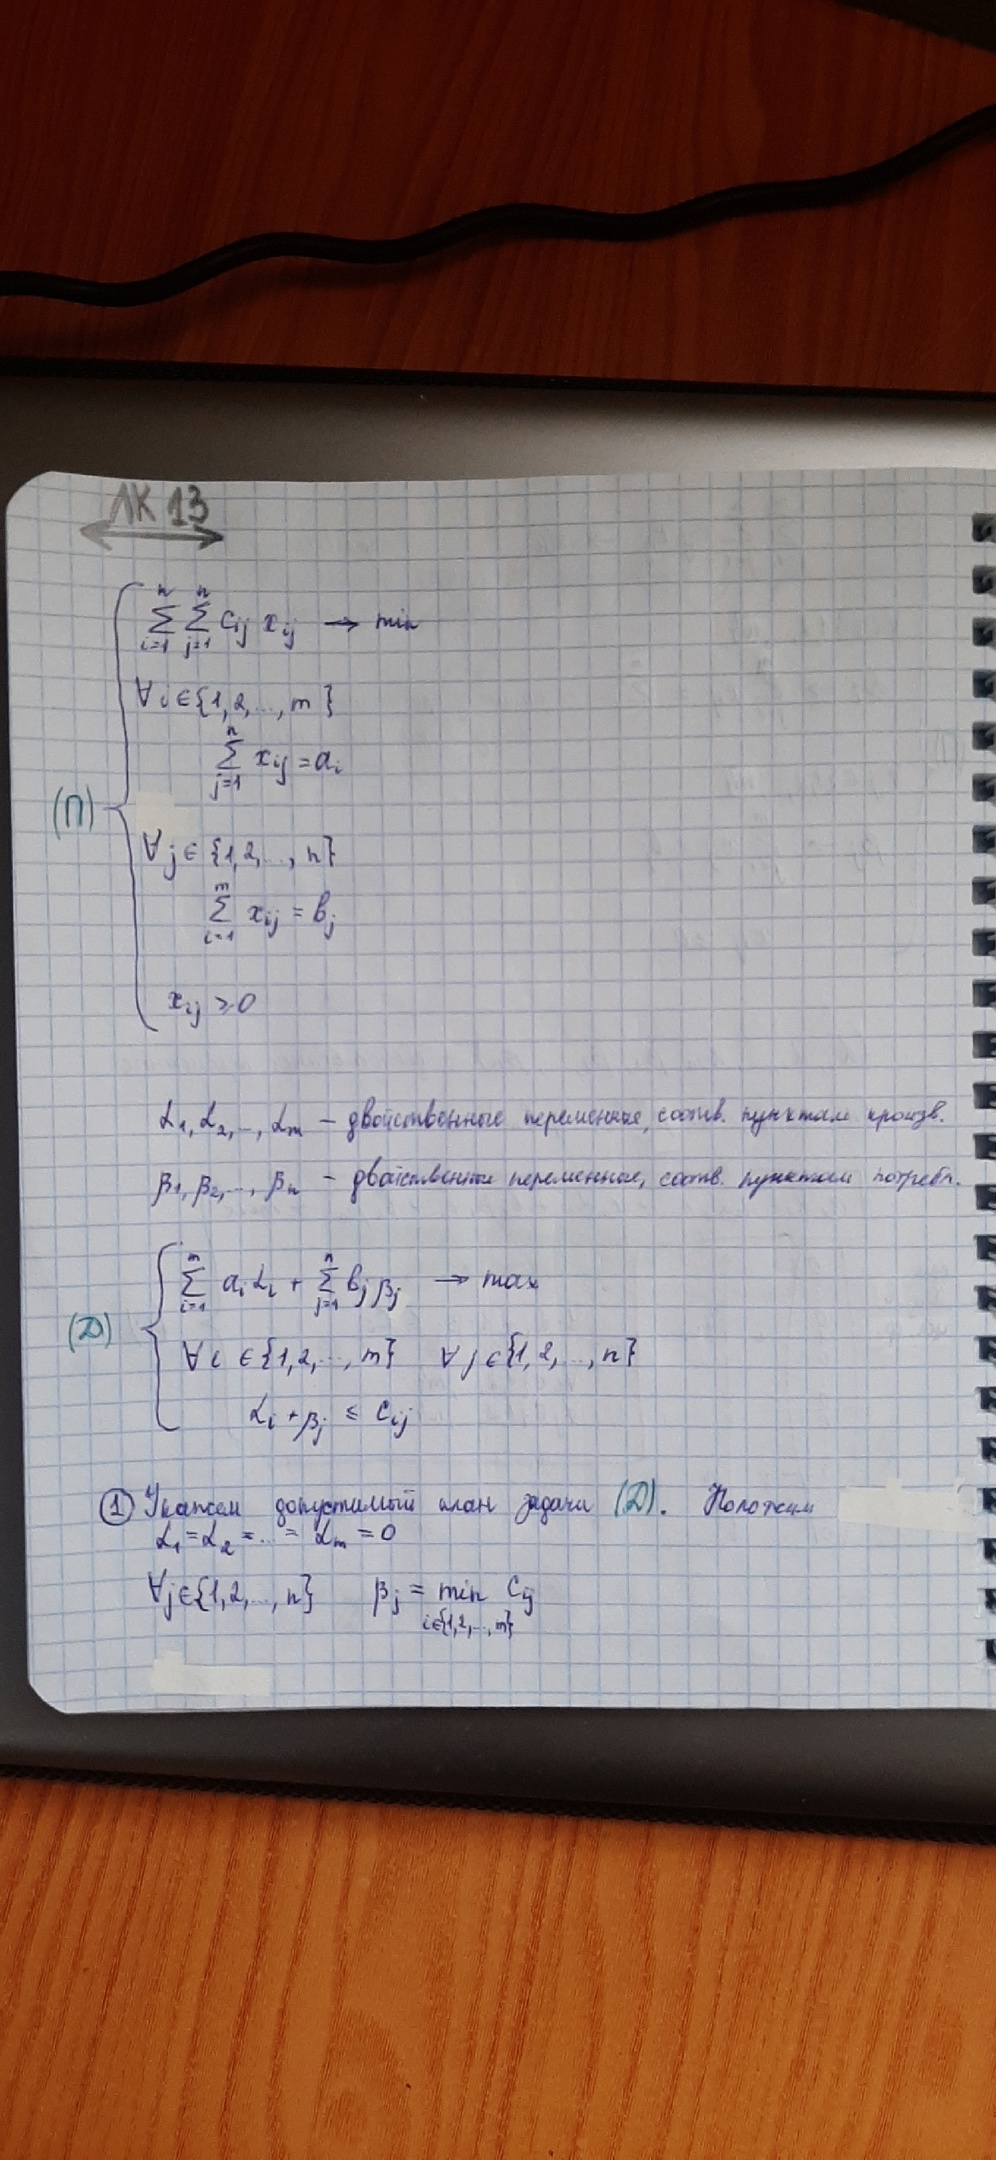 ЛК 13
(П)
n n
∑ ∑ cij xij → min
i=1 j=1
∀ i ∈ {1, 2, ..., m}
n
∑ xij = ai
j=1
∀ j ∈ {1, 2, ..., n}
m
∑ xij = bj
i=1
xij ≥ 0
α1, α2, ..., αm – двойственные переменные, соотв. пунктам произв.
β1, β2, ..., βn – двойственные переменные, соотв. пунктам потребл.
(Д)
m n
∑ ai αi + ∑ bj βj → max
i=1 j=1
∀ i ∈ {1, 2, ..., m} ∀ j ∈ {1, 2, ..., n}
αi + βj ≤ cij
① Укажем допустимый план задачи (Д). Положим
α1 = α2 = ... = αm = 0
∀ j ∈ {1, 2, ..., n} βj = min cij
i∈{1,2,...,m}